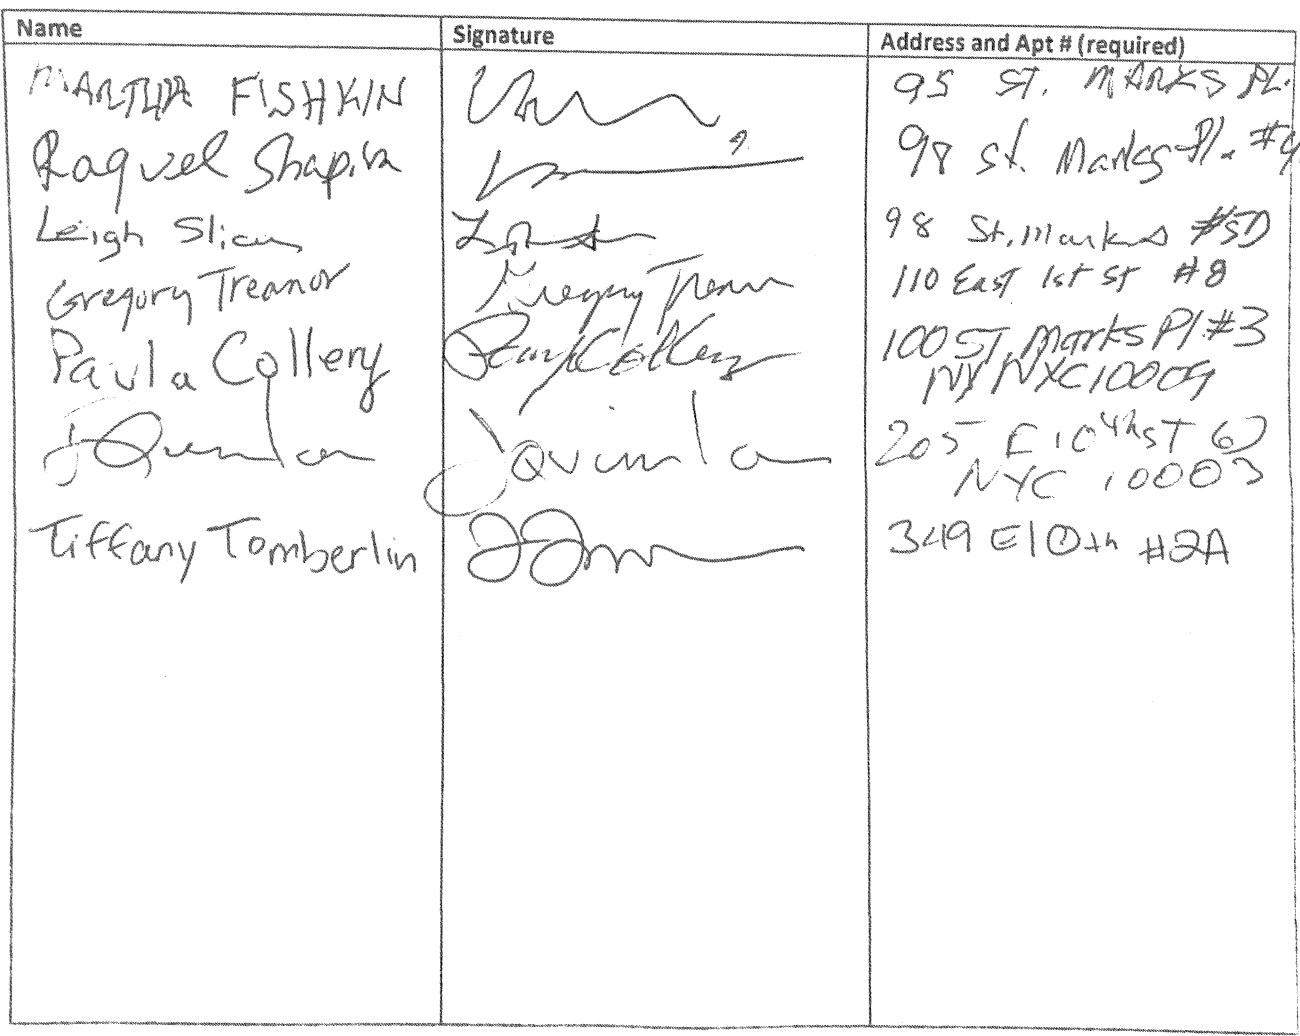 Name Signature Address and Apt # (required)
MARTHA FISHKIN 95 ST. MARKS PL.
Raquel Shapira 98 St. Marks Pl. #9
Leigh 98 St. Marks #5D
Gregory Treanor Gregory Treanor 110 East 1st St #8
Paula Collery Paula Collery 100 ST. Marks Pl #3
NY NYC 10009
J Quinlan J Quinlan 205 E 10th ST
NYC 10003
Tiffany Tomberlin 349 E 10th #2A